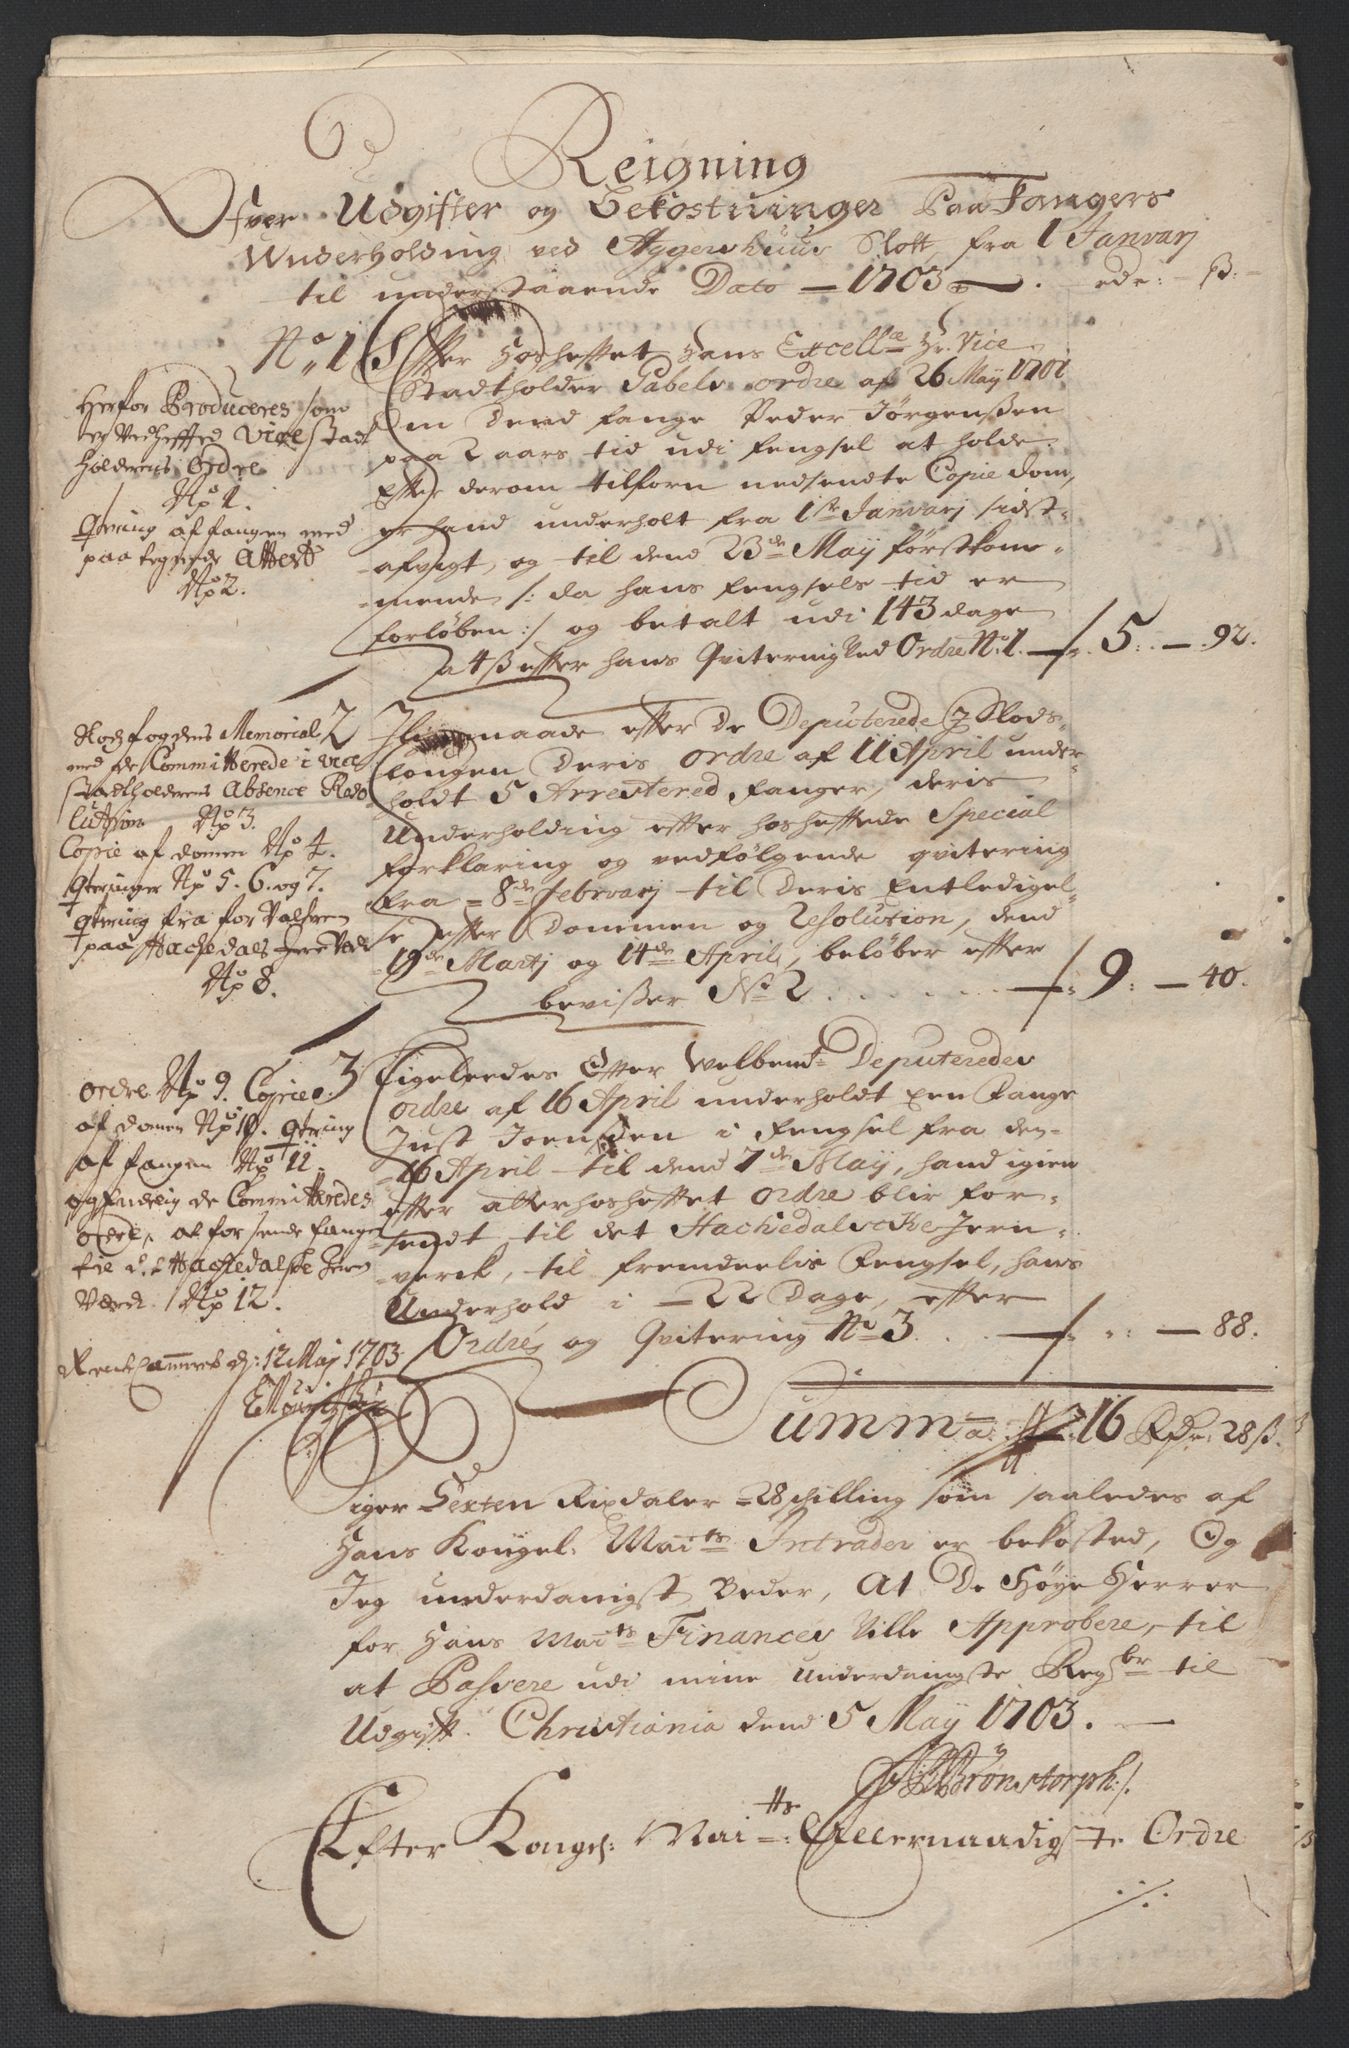 Reigning
Ofver Udgifter og Bekostninger Paa Fangers
Wnderholding ved Aggershuus Slott, fra 1 Janvarj
til understaaende Dato — 1703 — . rdr: — ß: —
No. 1 Effter Hoshefftet Hans Excell.ce Hr. Vice
Stadtholder Gabels ordre af 26 May 1701
Om Dend fange Peder Jørgenßen
paa 2 aars tid udi fengsel at holde
Effter derom tilforn nedsendte Copie dom,
er hand underholt fra 1ste Janvarj sidst-
afvigt, og til dend 23de May førstkom-
mende /: da hans fengsels tid er
forløben :/ og betalt udi 143 dage
a 4ß effter hans Qvitering Ved Ordre No. 1. — 5. — 92.
Herfor Produceres som
er Vedheffted Vice Stadt
holderens Ordre
No 1.
Qtering af fangen med
paa tegnede Attest
No 2.
2 Iligemaade effter De Deputerede ved Slods-
lougen Deris ordre af 11 April under-
holdt 5 Arrestered fanger, deris
Underholding effter hoshefftede Special
forklaring og vedfølgende qvitering
fra 8de febrvarj til Deris Entledigel-
se effter Dommen og Resolution, dend
19de Martj og 14de April, beløber effter
bevißer No 2 . . . . . — 9: — 40.
Slodz fogdens Memorial
med de Committerede i Vice
Stadtholderens Absence Reso
lution No 3.
Copie af domen No 4.
Qteringer No 5. 6. og 7.
Qtering fra forvalteren
paa Hachedals Jern Verk
No 8.
3 Ligeleedes Efter Welbemt. Deputeredes
ordre af 16 April underholdt Een Fange
Just Joensen i fengsel fra den
16 April til dend 7de May, hand igien
effter atter hoshefftet ordre blir for-
sendt til det Hachedalscke Jern-
verck, til fremdeelis Fengsel, hans
Underhold i 22 Dage, effter
Ordres og Qvitering No 3. . . — „: — 88.
ordre No 9. Copie
af domen No 10. Qtering
af fangen No 11.
og endelig de Committeredes
ordre, at forsende fangen
til det Hachedalske Jern
Værck No 12.
Rente Cammeret d: 12 Maj 1703
Summa: 16 Rdr: 28 ß.
Siger Sexten Rixdaler 28 schilling som saaledes af
Hans Kongel: Maits Intrader er bekosted, Og
Jeg underdanigst Beder, At De Høye Herrer
for Hans Maits Finances Ville Approbere, til
at Pahsere udi mine underdanigste Regsbr til
Udgifft. Christiania dend 5 May 1703. —
Brønstorph:/.
Efter Kongel: Maitts: Allernaadigste Ordre
./.